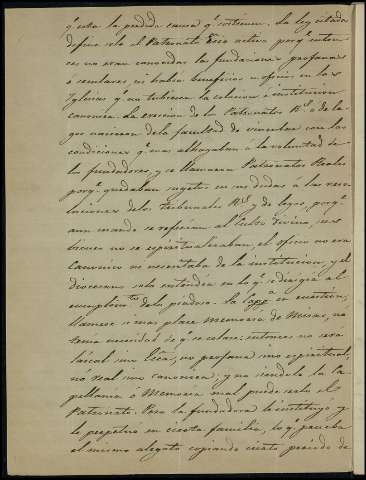 qe. esta la perdida causa qe. sostienen. La ley citada
define solo el Patronato Ecco. activo porqe. enton-
ces no eran conocidas las fundaciones profanas
ó seculares, ni habia beneficios ú oficios en las
Iglesias qe. no tubiesen la colacion é institucion
Canonica. La ereccion de los Patronatos Rs. ó de le-
gos nacieron dela facultad de vincular con las
condiciones qe. mas alhagaban á la voluntad de
los fundadores, y se llamaron Patronatos Reales
porqe. quedaban sugetos en sus dudas á las reso-
luciones delos Tribunales Rs. y de legos, porqe.
aun cuando se referian al Culto Divino, sus
bienes no se espiritualizaban, el oficio no era
Canonico no necesitaba de la institucion, y el
diocesano solo entendia en lo qe. se dirigia al
cumplimto. delo piadoso. La Capa. en cuestion,
llamese si mas place Memoria de Misas, no
tema necesidad de qe. se colase; entonces no sera
laical sino Ecca., no profana sino espiritual,
nó real sino canonica: y no siendolo la Ca-
pellania ó Memoria mal puede serlo el
Patronato. Pero la fundadora lo instituyó y
lo perpetuó en cierta familia, lo qe. prueba
el mismo alegato copiando cierto periodo de